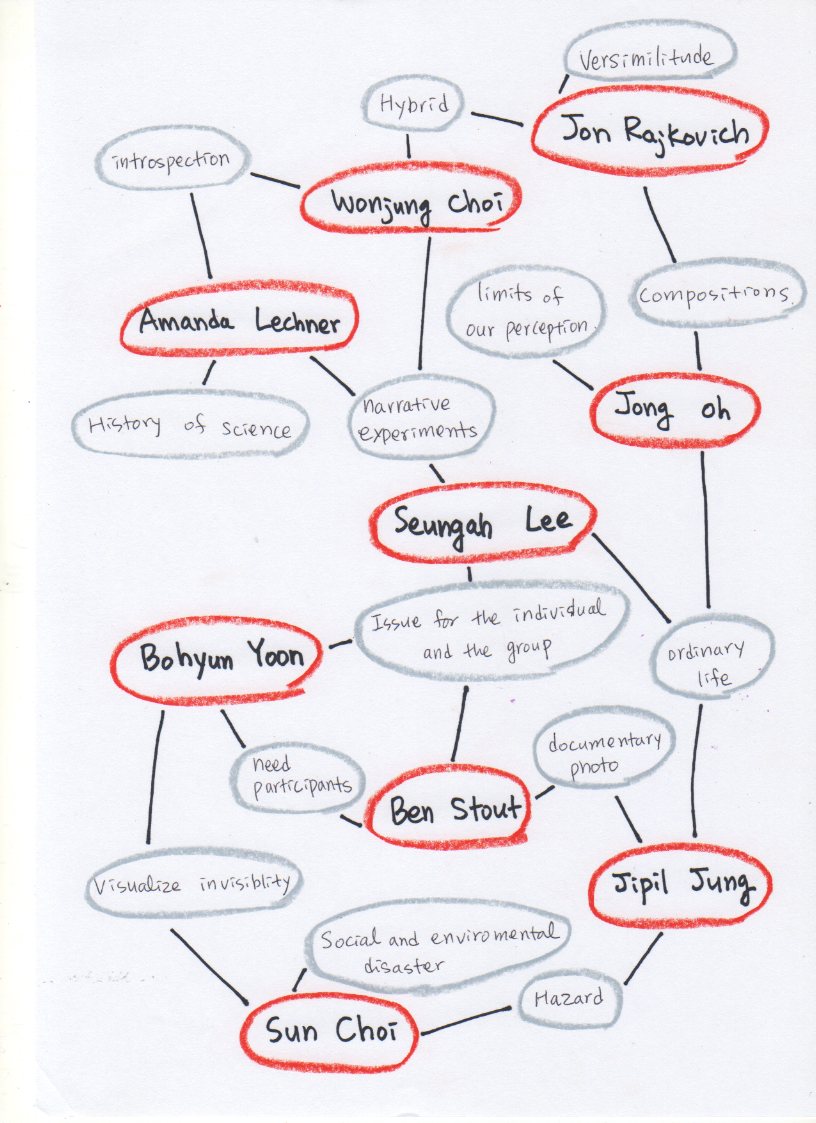 Versimilitude
Hybrid
Jon Rajkovich
introspection
Wonjung Choi
limits of
our perception
Compositions
Amanda Lechner
Jong oh
narrative
experiments
History of science
Seungah Lee
Issue for the individual
and the group
Bohyun Yoon
ordinary
life
documentary
photo
need
participants
Ben Stout
Visualize invisiblity
Jipil Jung
Social and enviromental
disaster
Hazard
Sun Choi